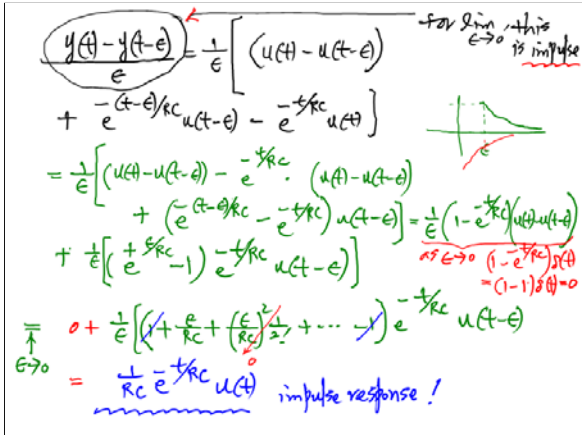 for lim ε→0, this is impulse
(y(t) - y(t-ε))/ε = 1/ε [ (u(t) - u(t-ε))
+ e^{-(t-ε)/RC} u(t-ε) - e^{-t/RC} u(t) ]
ε
= 1/ε [ (u(t) - u(t-ε)) - e^{-t/RC} · (u(t) - u(t-ε))
+ (e^{-(t-ε)/RC} - e^{-t/RC}) u(t-ε) ] = 1/ε (1 - e^{-t/RC})(u(t) - u(t-ε))
+ 1/ε [ (e^{+ε/RC} - 1) e^{-t/RC} u(t-ε) ]
as ε→0 (1 - e^{-t/RC}) δ(t)
= (1-1) δ(t) = 0
= 0 + 1/ε [ (1 + ε/RC + (ε/RC)^2 1/2! + ··· - 1) e^{-t/RC} u(t-ε)
ε→0
0
= 1/RC e^{-t/RC} u(t) impulse response !